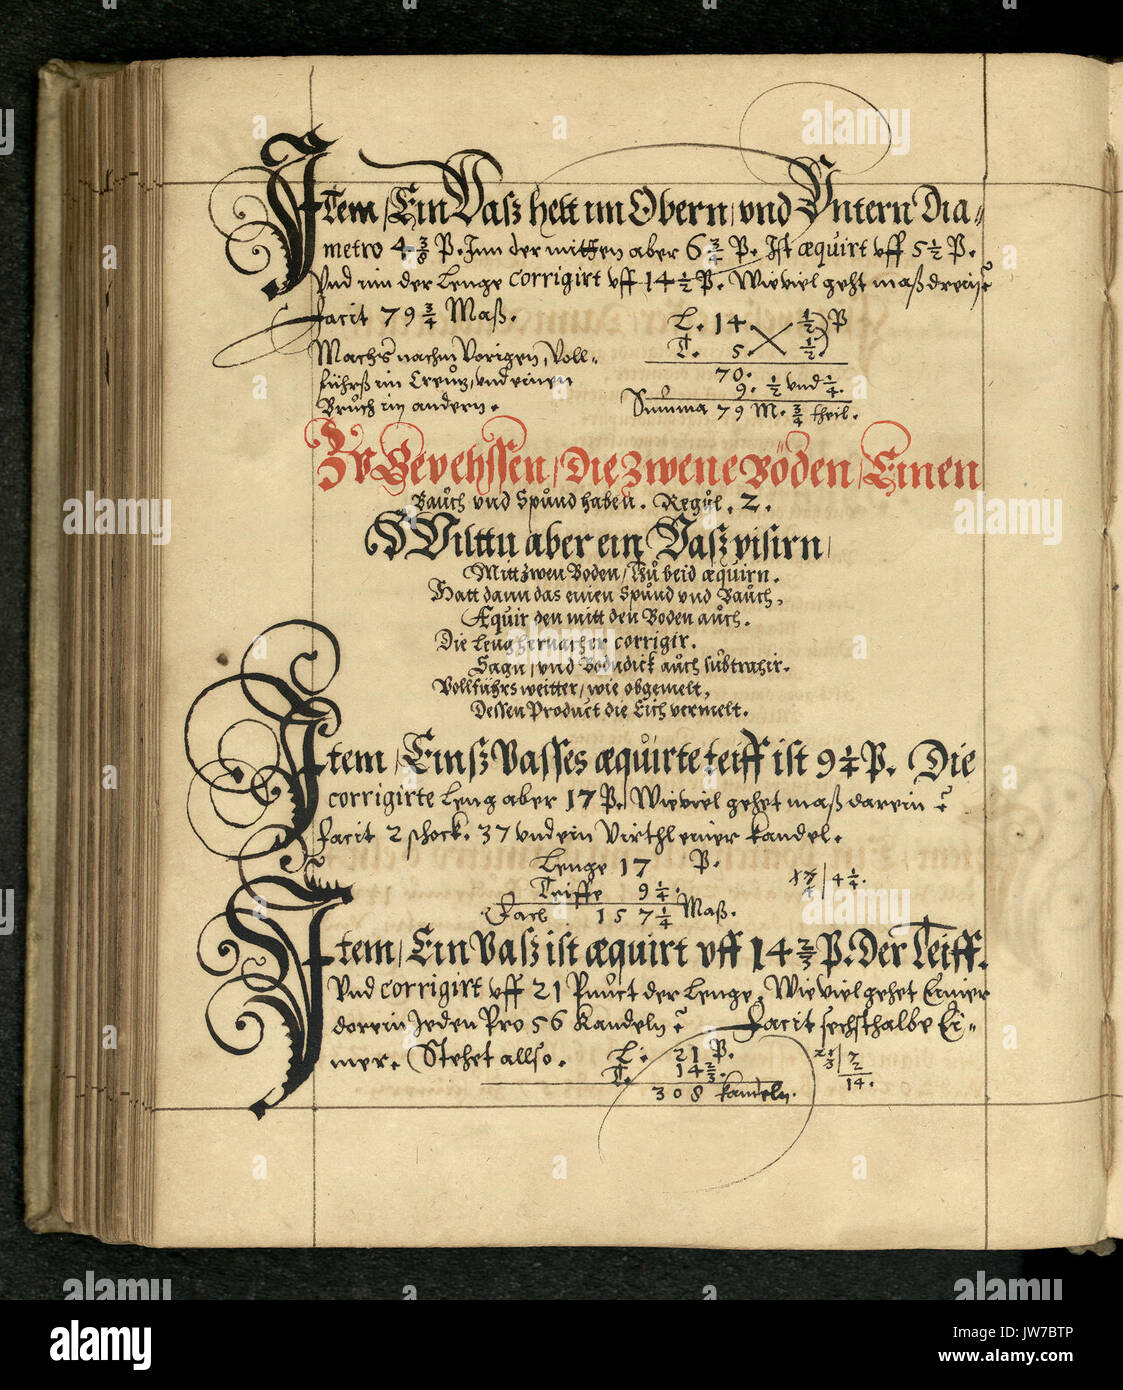 Item / Ein Vasz helt im Obern / vnd Vntern Dia=
metro 4 3/8 P. Inn der mitten aber 6 3/4 P. Ist æquirt vff 5 1/2 P.
Vnd inn der Lenge corrigirt vff 14 1/2 P. Wieviel geht maß drein?
facit 79 3/4 Maß.
L. 14 1/2 P
T. 5. 1/2
Machs nachm Vorigen, Voll=
führß im Creutz, vnd einen
Bruch im andern.
70.
9. 1/2 vnd 1/4.
Summa 79 M. 3/4 theil.
Zv Gevehssen / Die Zwene Böden / Einen
Bauch vnd Spund haben. Regul. 2.
Wilttu aber ein Vasz visirn /
Mitt zwen Boden / Thu beid æquirn.
Hatt dann das einen Spund vnd Bauch,
Æquir den mitt den Boden auch.
Die Leng hernacher corrigir.
vnd Bodndick auch subtrahir.
Vollführs weitter / wie obgemelt,
Dessen Product die Eich vermelt.
Item / Einsz Vasses æquirte teiff ist 9 1/4 P. Die
corrigirte Leng aber 17 P. Wieviel gehet maß darein?
facit 2 schock. 37 vnd ein Virthl einer kandel.
Lenge 17 P.
Teiffe 9 1/4.
17/4 | 4 1/4.
Facit 157 1/4 Maß.
Item / Ein Vasz ist æquirt vff 14 2/3 P. Der Teiff.
Vnd corrigirt vff 21 Punct der Lenge. Wieviel gehet Eimer
dorein Jeden Pro 56 Kandeln? Facit sechsthalbe Ei=
mer. Stehet allso.
L. 21 P.
T. 14 2/3.
21/3 | 7/2
14.
308 kandeln.
alamy
Image ID: JW7BTP
www.alamy.com